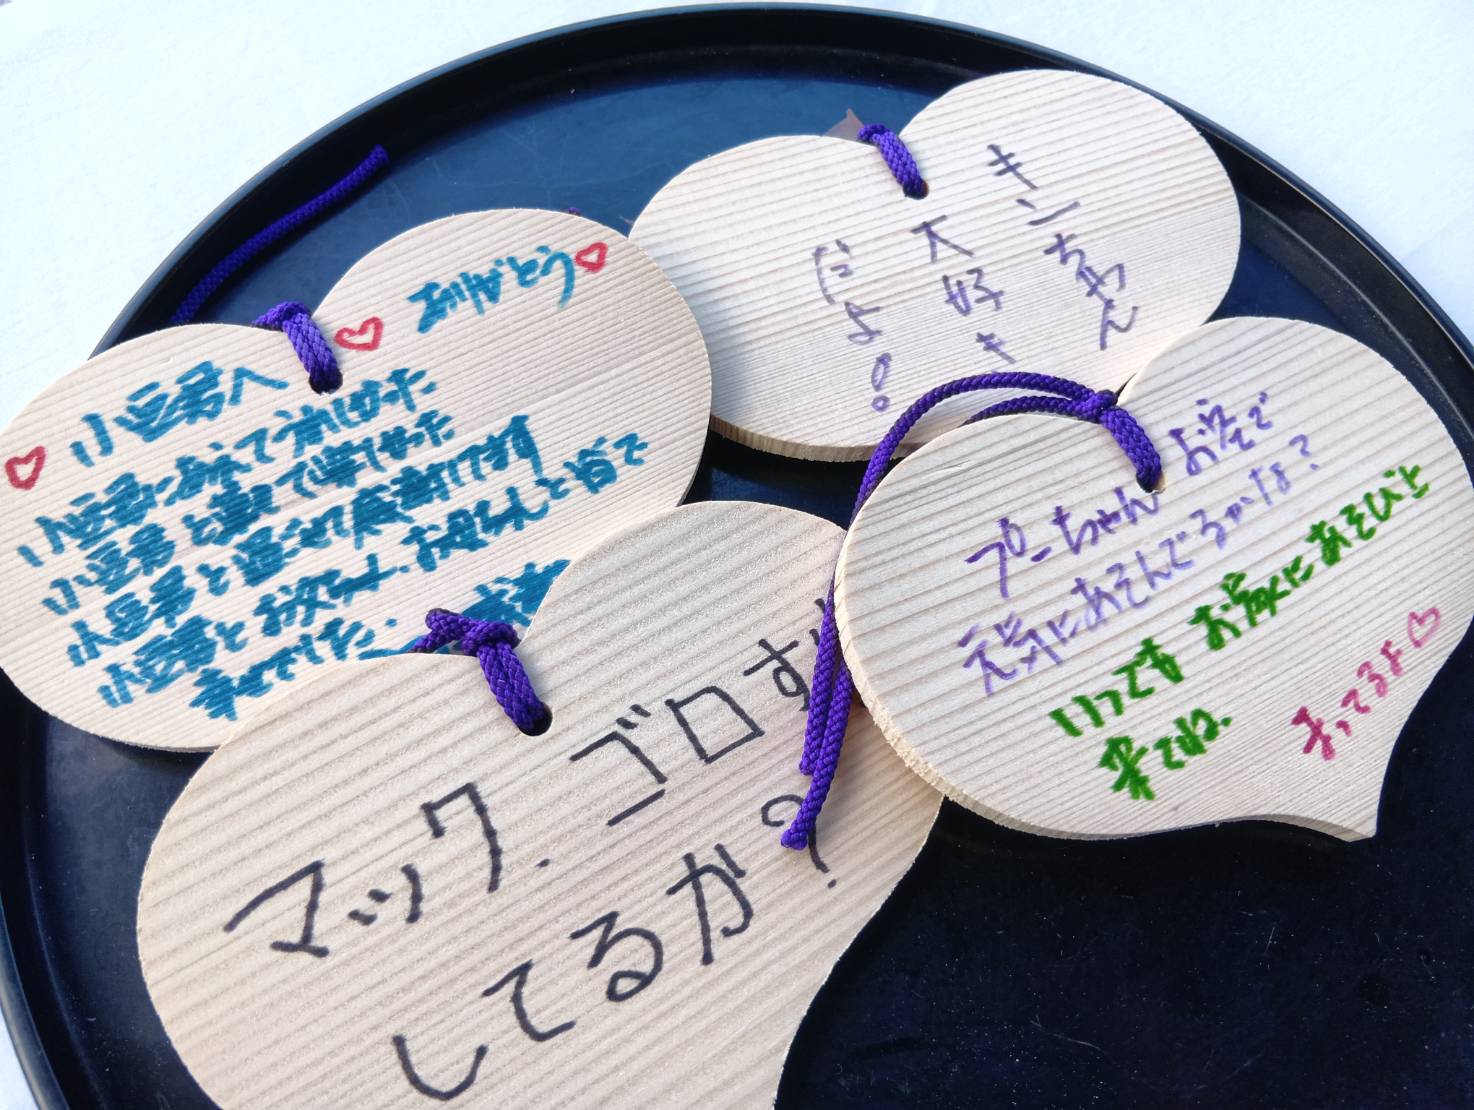 ありがとう
小豆君へ
小豆君に出会えてうれしかった
小豆君と
小豆君と過ごせて感謝してます
小豆君とお父さん、お母さんと皆で
幸せでした。
キンちゃん
大好き
だよ!
プーちゃんお空で
元気にあそんでるかな?
いつでもお家にあそびに
来てね。
まってるよ
マック.ゴロ
してるか?